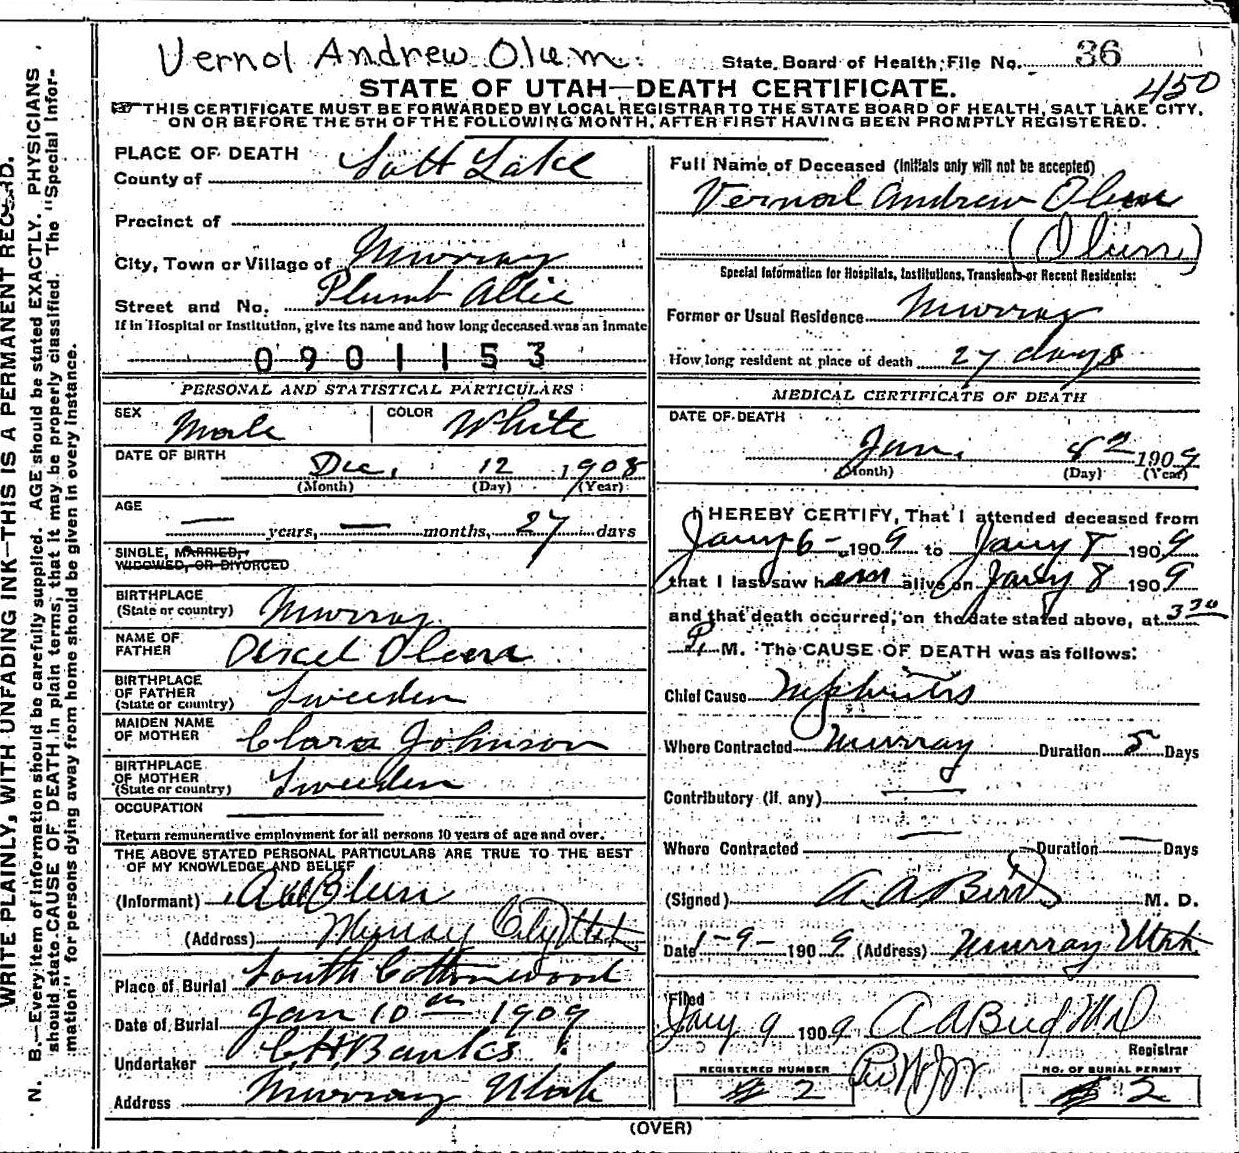 Vernol Andrew Olum.
State Board of Health File No. 36
450
STATE OF UTAH—DEATH CERTIFICATE.
☞ THIS CERTIFICATE MUST BE FORWARDED BY LOCAL REGISTRAR TO THE STATE BOARD OF HEALTH, SALT LAKE CITY,
ON OR BEFORE THE 5TH OF THE FOLLOWING MONTH, AFTER FIRST HAVING BEEN PROMPTLY REGISTERED.
WRITE PLAINLY, WITH UNFADING INK—THIS IS A PERMANENT RECORD.
N. B.—Every item of information should be carefully supplied. AGE should be stated EXACTLY. PHYSICIANS
should state CAUSE OF DEATH in plain terms, that it may be properly classified. The "Special Infor-
mation" for persons dying away from home should be given in every instance.
PLACE OF DEATH
County of Salt Lake
Precinct of
City, Town or Village of Murray
Street and No. Plumb
If in Hospital or Institution, give its name and how long deceased was an inmate
0901153
PERSONAL AND STATISTICAL PARTICULARS
SEX Male COLOR White
DATE OF BIRTH Dec. 12 1908
(Month) (Day) (Year)
AGE
— years, — months, 27 days
SINGLE, MARRIED,
WIDOWED, OR DIVORCED
BIRTHPLACE
(State or country) Murray
NAME OF
FATHER
BIRTHPLACE
OF FATHER
(State or country) Sweeden
MAIDEN NAME
OF MOTHER Clara Johnson
BIRTHPLACE
OF MOTHER
(State or country) Sweeden
OCCUPATION
Return remunerative employment for all persons 10 years of age and over.
THE ABOVE STATED PERSONAL PARTICULARS ARE TRUE TO THE BEST
OF MY KNOWLEDGE AND BELIEF
(Informant)
(Address) Murray City Utah
Place of Burial South Cottonwood
Date of Burial Jan 10th 1909
Undertaker C H Banks
Address Murray Utah
Full Name of Deceased (Initials only will not be accepted)
Vernol Andrew Olum
(Olum)
Special Information for Hospitals, Institutions, Transients or Recent Residents:
Former or Usual Residence Murray
How long resident at place of death 27 days
MEDICAL CERTIFICATE OF DEATH
DATE OF DEATH
Jan. 8 1909
(Month) (Day) (Year)
I HEREBY CERTIFY, That I attended deceased from
Jany 6- 1909 to Jany 8 1909
that I last saw him alive on Jany 8 1909
and that death occurred, on the date stated above, at 3 30
P. M. The CAUSE OF DEATH was as follows:
Chief Cause Nephritis
Where Contracted Murray Duration 5 Days
Contributory (if any) —
Where Contracted — Duration — Days
(Signed) A. A. Bird M. D.
Date 1-9- 1909 (Address) Murray Utah
Filed
Jany 9 1909 A A Bird MD
Registrar
REGISTERED NUMBER
# 2
NO. OF BURIAL PERMIT
# 2
(OVER)